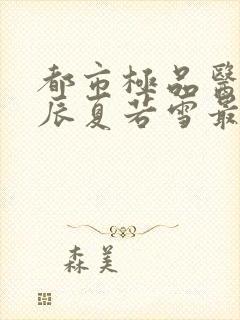 都市極品醫
辰夏若雪最
森美